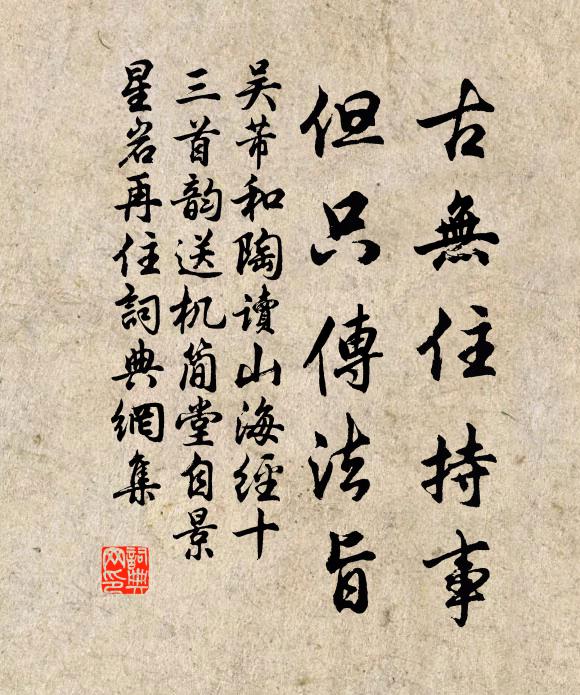 古無住持事
但只傳法旨
吴芾和陶讀山海經十
三首韵送机简堂自景
星岩再住詞典網集
詞典网印